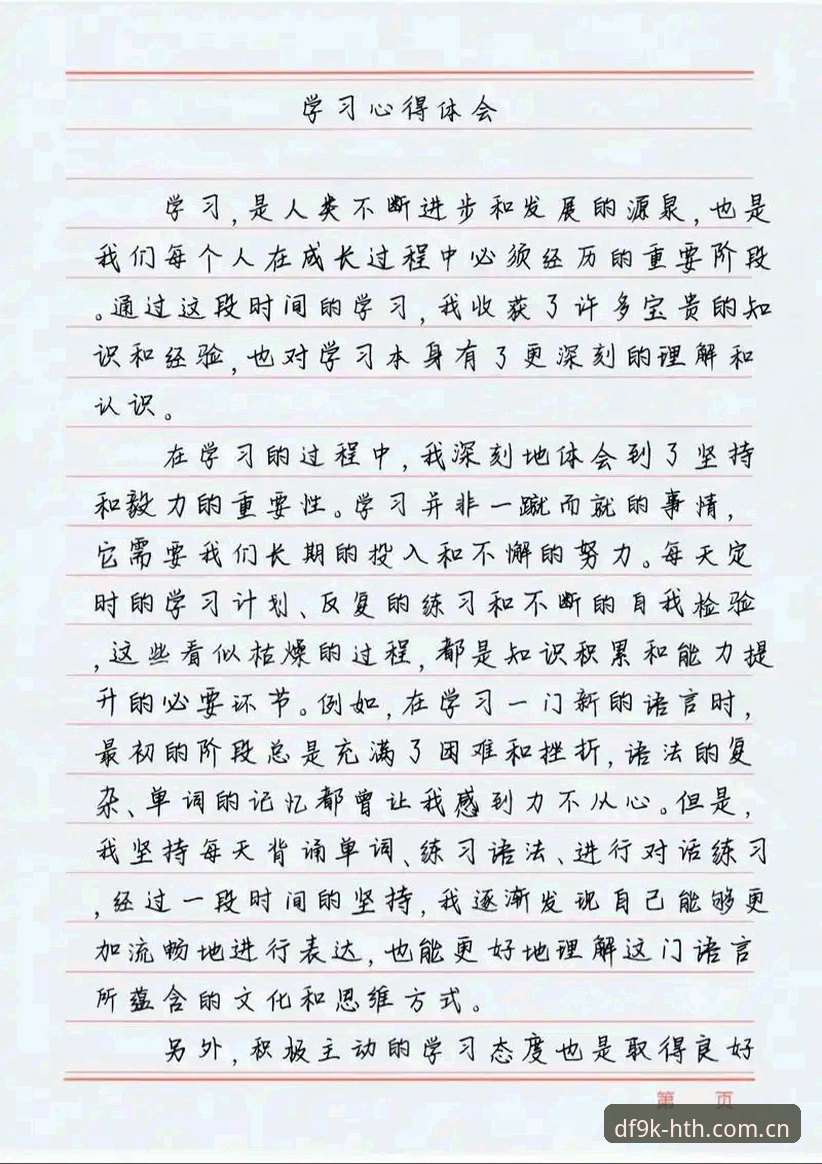 学习心得体会
学习,是人类不断进步和发展的源泉,也是
我们每个人在成长过程中必须经历的重要阶段
。通过这段时间的学习,我收获了许多宝贵的知
识和经验,也对学习本身有了更深刻的理解和
认识。
在学习的过程中,我深刻地体会到了坚持
和毅力的重要性。学习并非一蹴而就的事情,
它需要我们长期的投入和不懈的努力。每天定
时的学习计划、反复的练习和不断的自我检验
,这些看似枯燥的过程,都是知识积累和能力提
升的必要环节。例如,在学习一门新的语言时,
最初的阶段总是充满了困难和挫折,语法的复
杂、单词的记忆都曾让我感到力不从心。但是,
我坚持每天背诵单词、练习语法、进行对话练习
,经过一段时间的坚持,我逐渐发现自己能够更
加流畅地进行表达,也能更好地理解这门语言
所蕴含的文化和思维方式。
另外,积极主动的学习态度也是取得良好
第 页
df9k-hth.com.cn